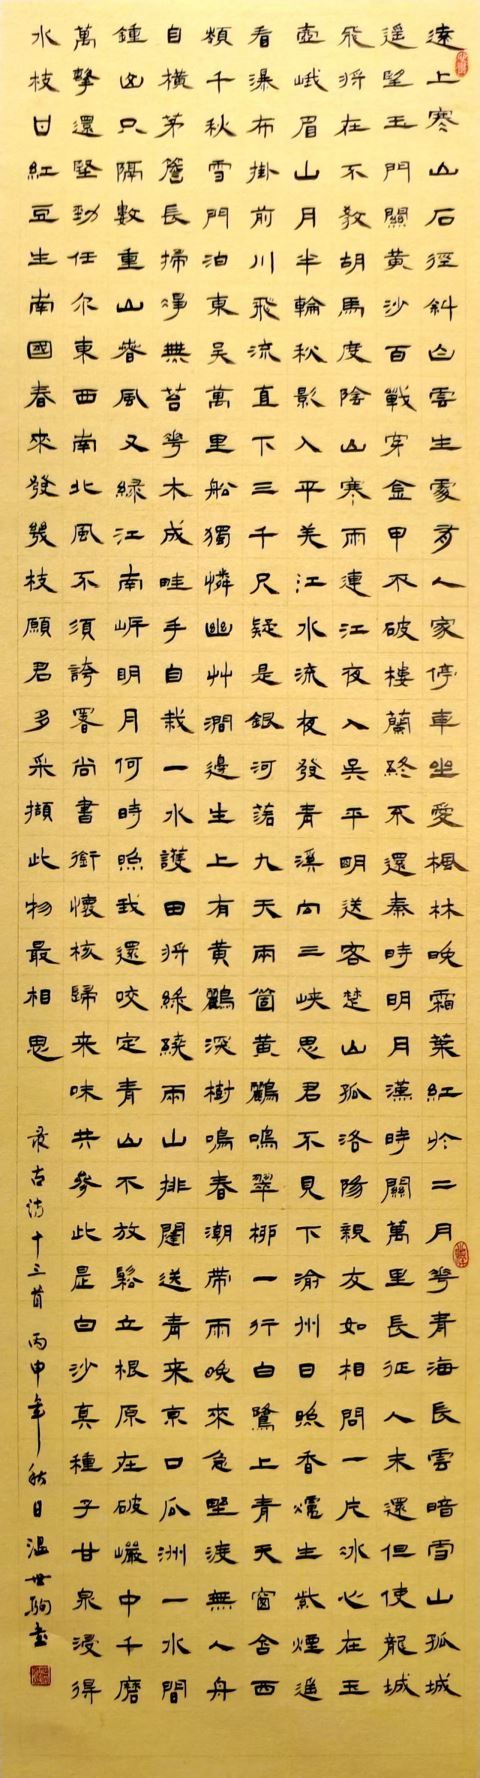 遠上寒山石徑斜白雲生處有人家停車坐愛楓林晚霜葉紅於二月華青海長雲暗雪山孤城
遙望玉門關黃沙百戰穿金甲不破樓蘭終不還秦時明月漢時關萬里長征人未還但使龍城
飛將在不教胡馬度陰山寒雨連江夜入吳平明送客楚山孤洛陽親友如相問一片冰心在玉
壺峨眉山月半輪秋影入平羌江水流夜發青溪向三峽思君不見下渝州日照香爐生紫煙遙
看瀑布掛前川飛流直下三千尺疑是銀河落九天兩箇黃鸝鳴翠柳一行白鷺上青天窗含西
嶺千秋雪門泊東吳萬里船獨憐幽艸澗邊生上有黃鸝深樹鳴春潮帶雨晚來急野渡無人舟
自橫茅簷長掃淨無苔華木成畦手自栽一水護田將綠繞兩山排闥送青來京口瓜洲一水間
鍾山只隔數重山春風又綠江南岸明月何時照我還咬定青山不放鬆立根原在破巖中千磨
萬擊還堅勁任尔東西南北風不須誇署尚書銜懷核歸來味共參此是白沙真種子甘泉浸得
水枝甘紅豆生南國春來發幾枝願君多采擷此物最相思 录古詩十三首 丙申年秋日溫世駒書